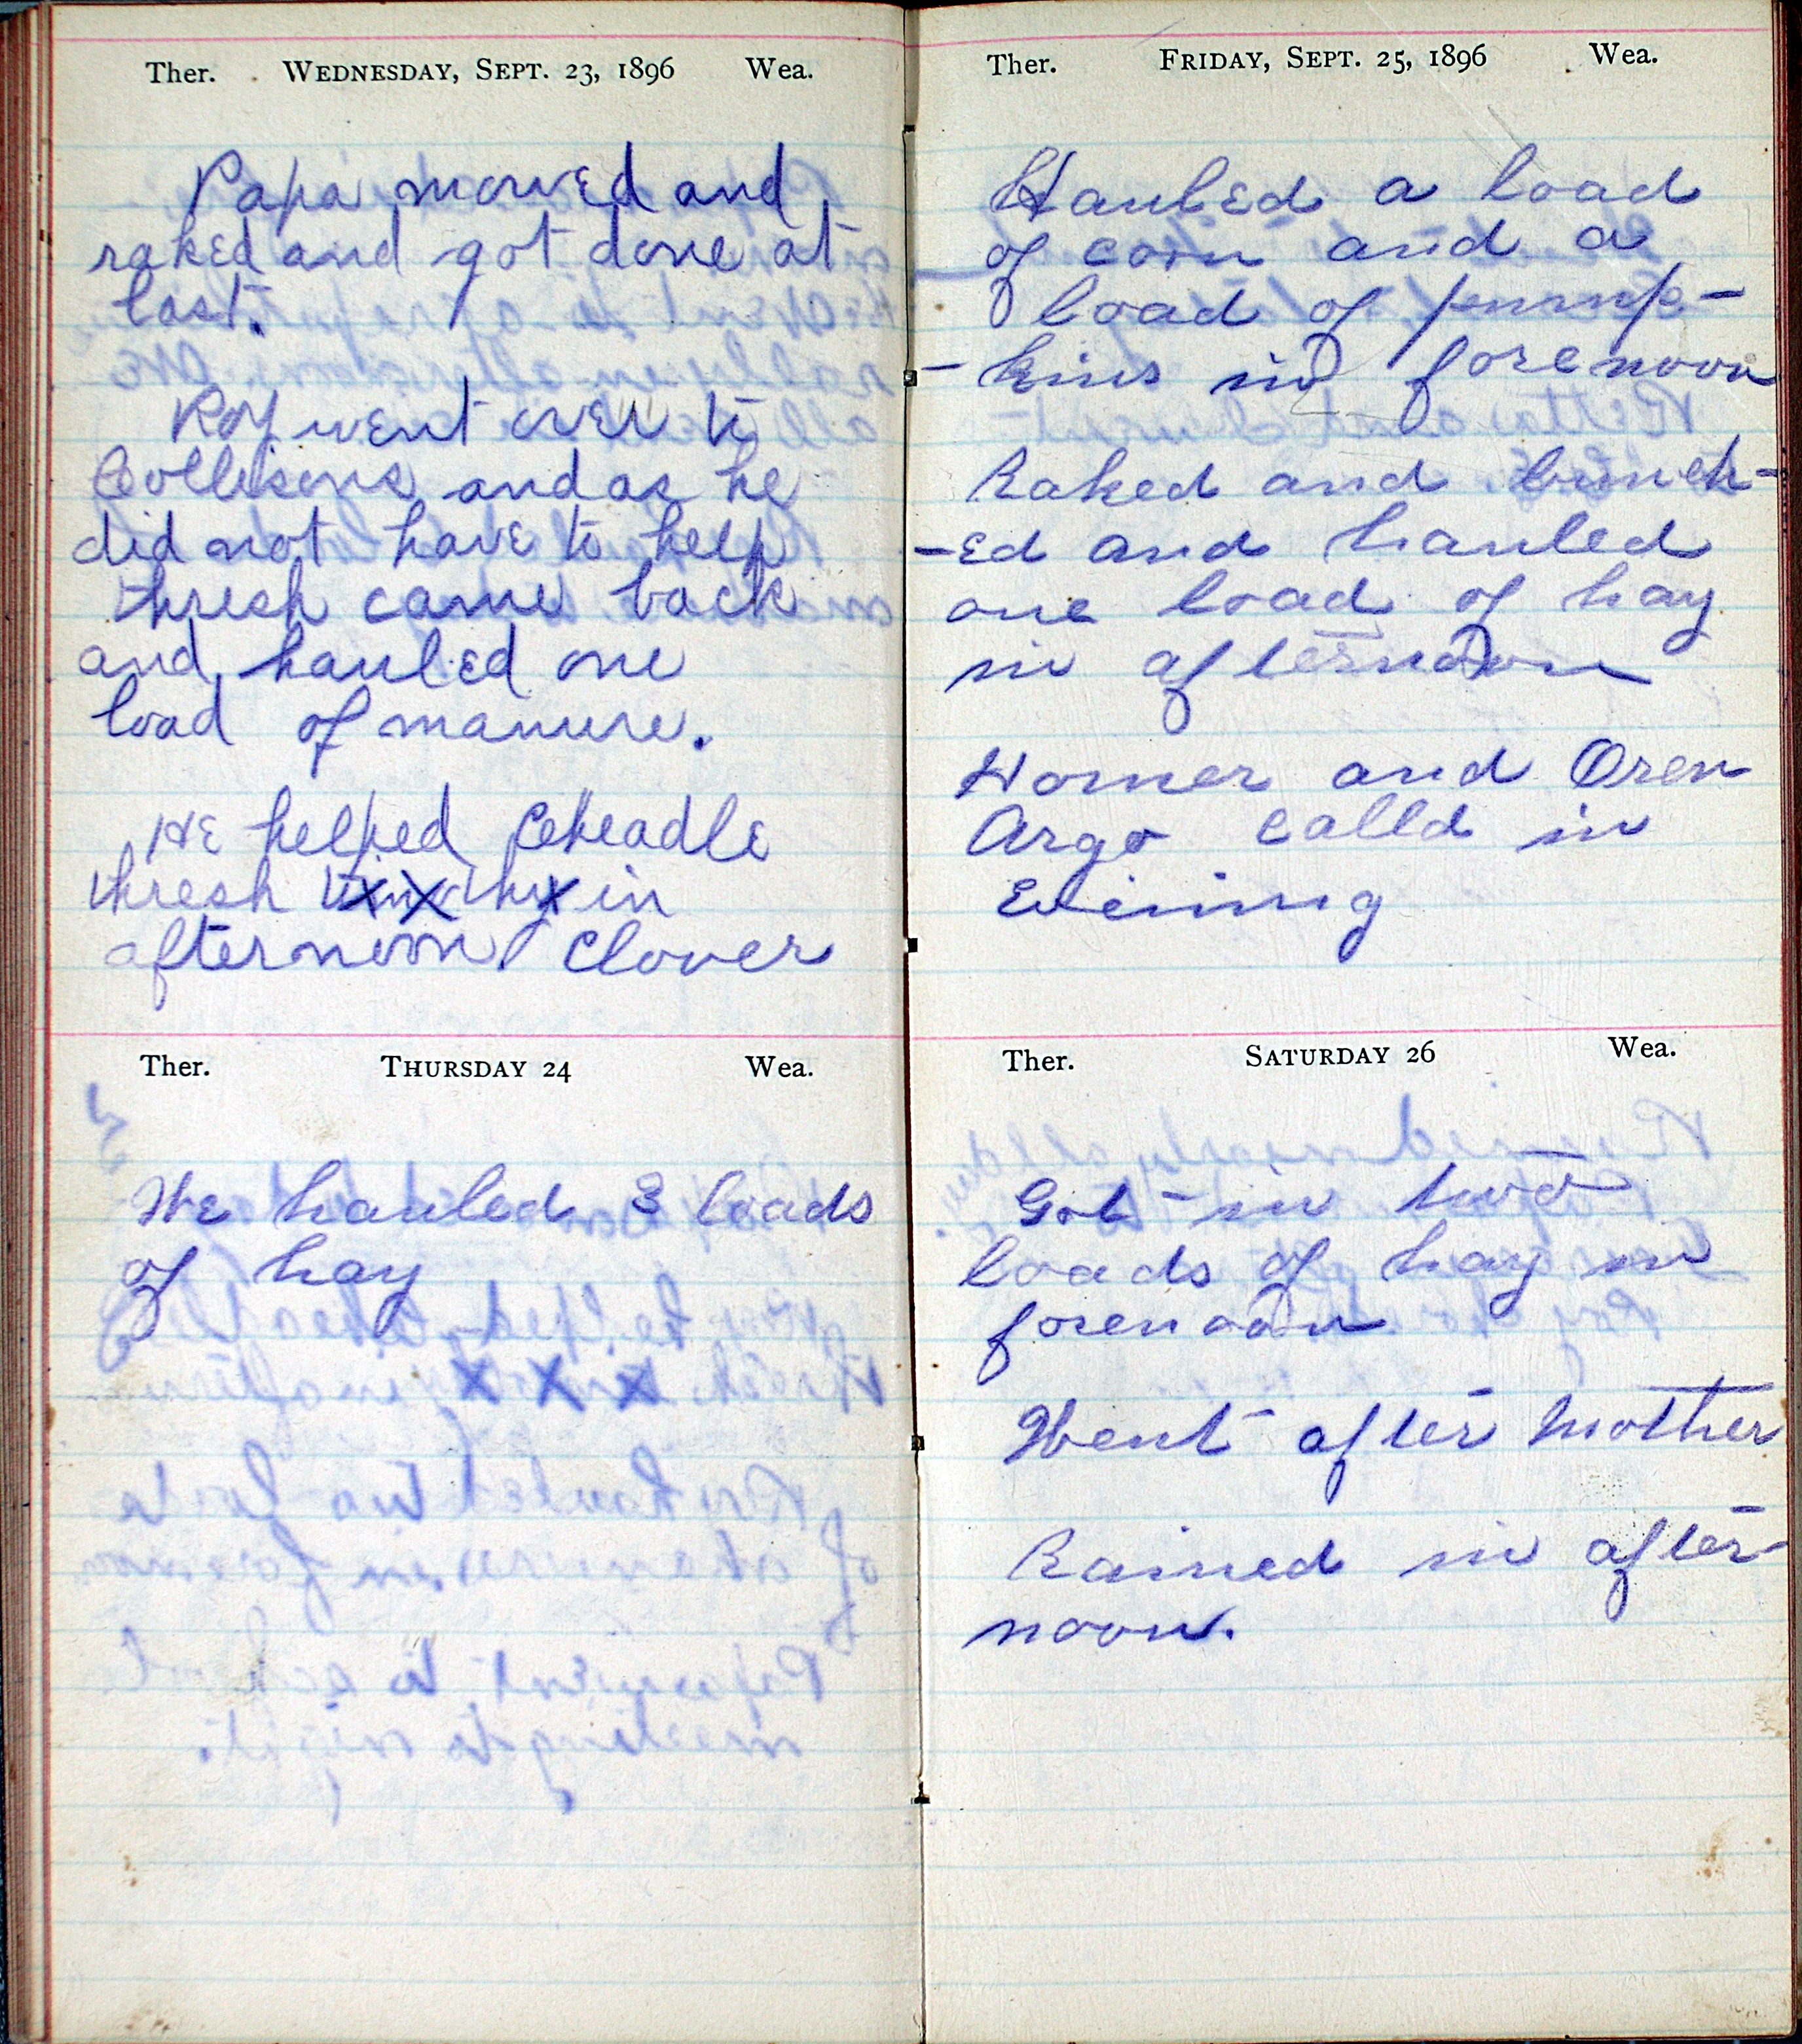 Ther. WEDNESDAY, SEPT. 23, 1896 Wea.
Papa mowed and
raked and got done at
last.
Roy went over to
Collisons and as he
did not have to help
thresh came back
and hauled one
load of manure.
He helped Cheadle
thresh timothy in
afternoon Clover
Ther. THURSDAY 24 Wea.
We hauled 3 loads
of hay
Ther. FRIDAY, SEPT. 25, 1896 Wea.
Hauled a load
of corn and a
load of pump-
-kins in forenoon
Raked and bunch-
-ed and hauled
one load of hay
in afternoon
Homer and Oren
Argo calld in
Evening
Ther. SATURDAY 26 Wea.
Got in two
loads of hay in
forenoon
Went after Mother
Rained in after-
noon.